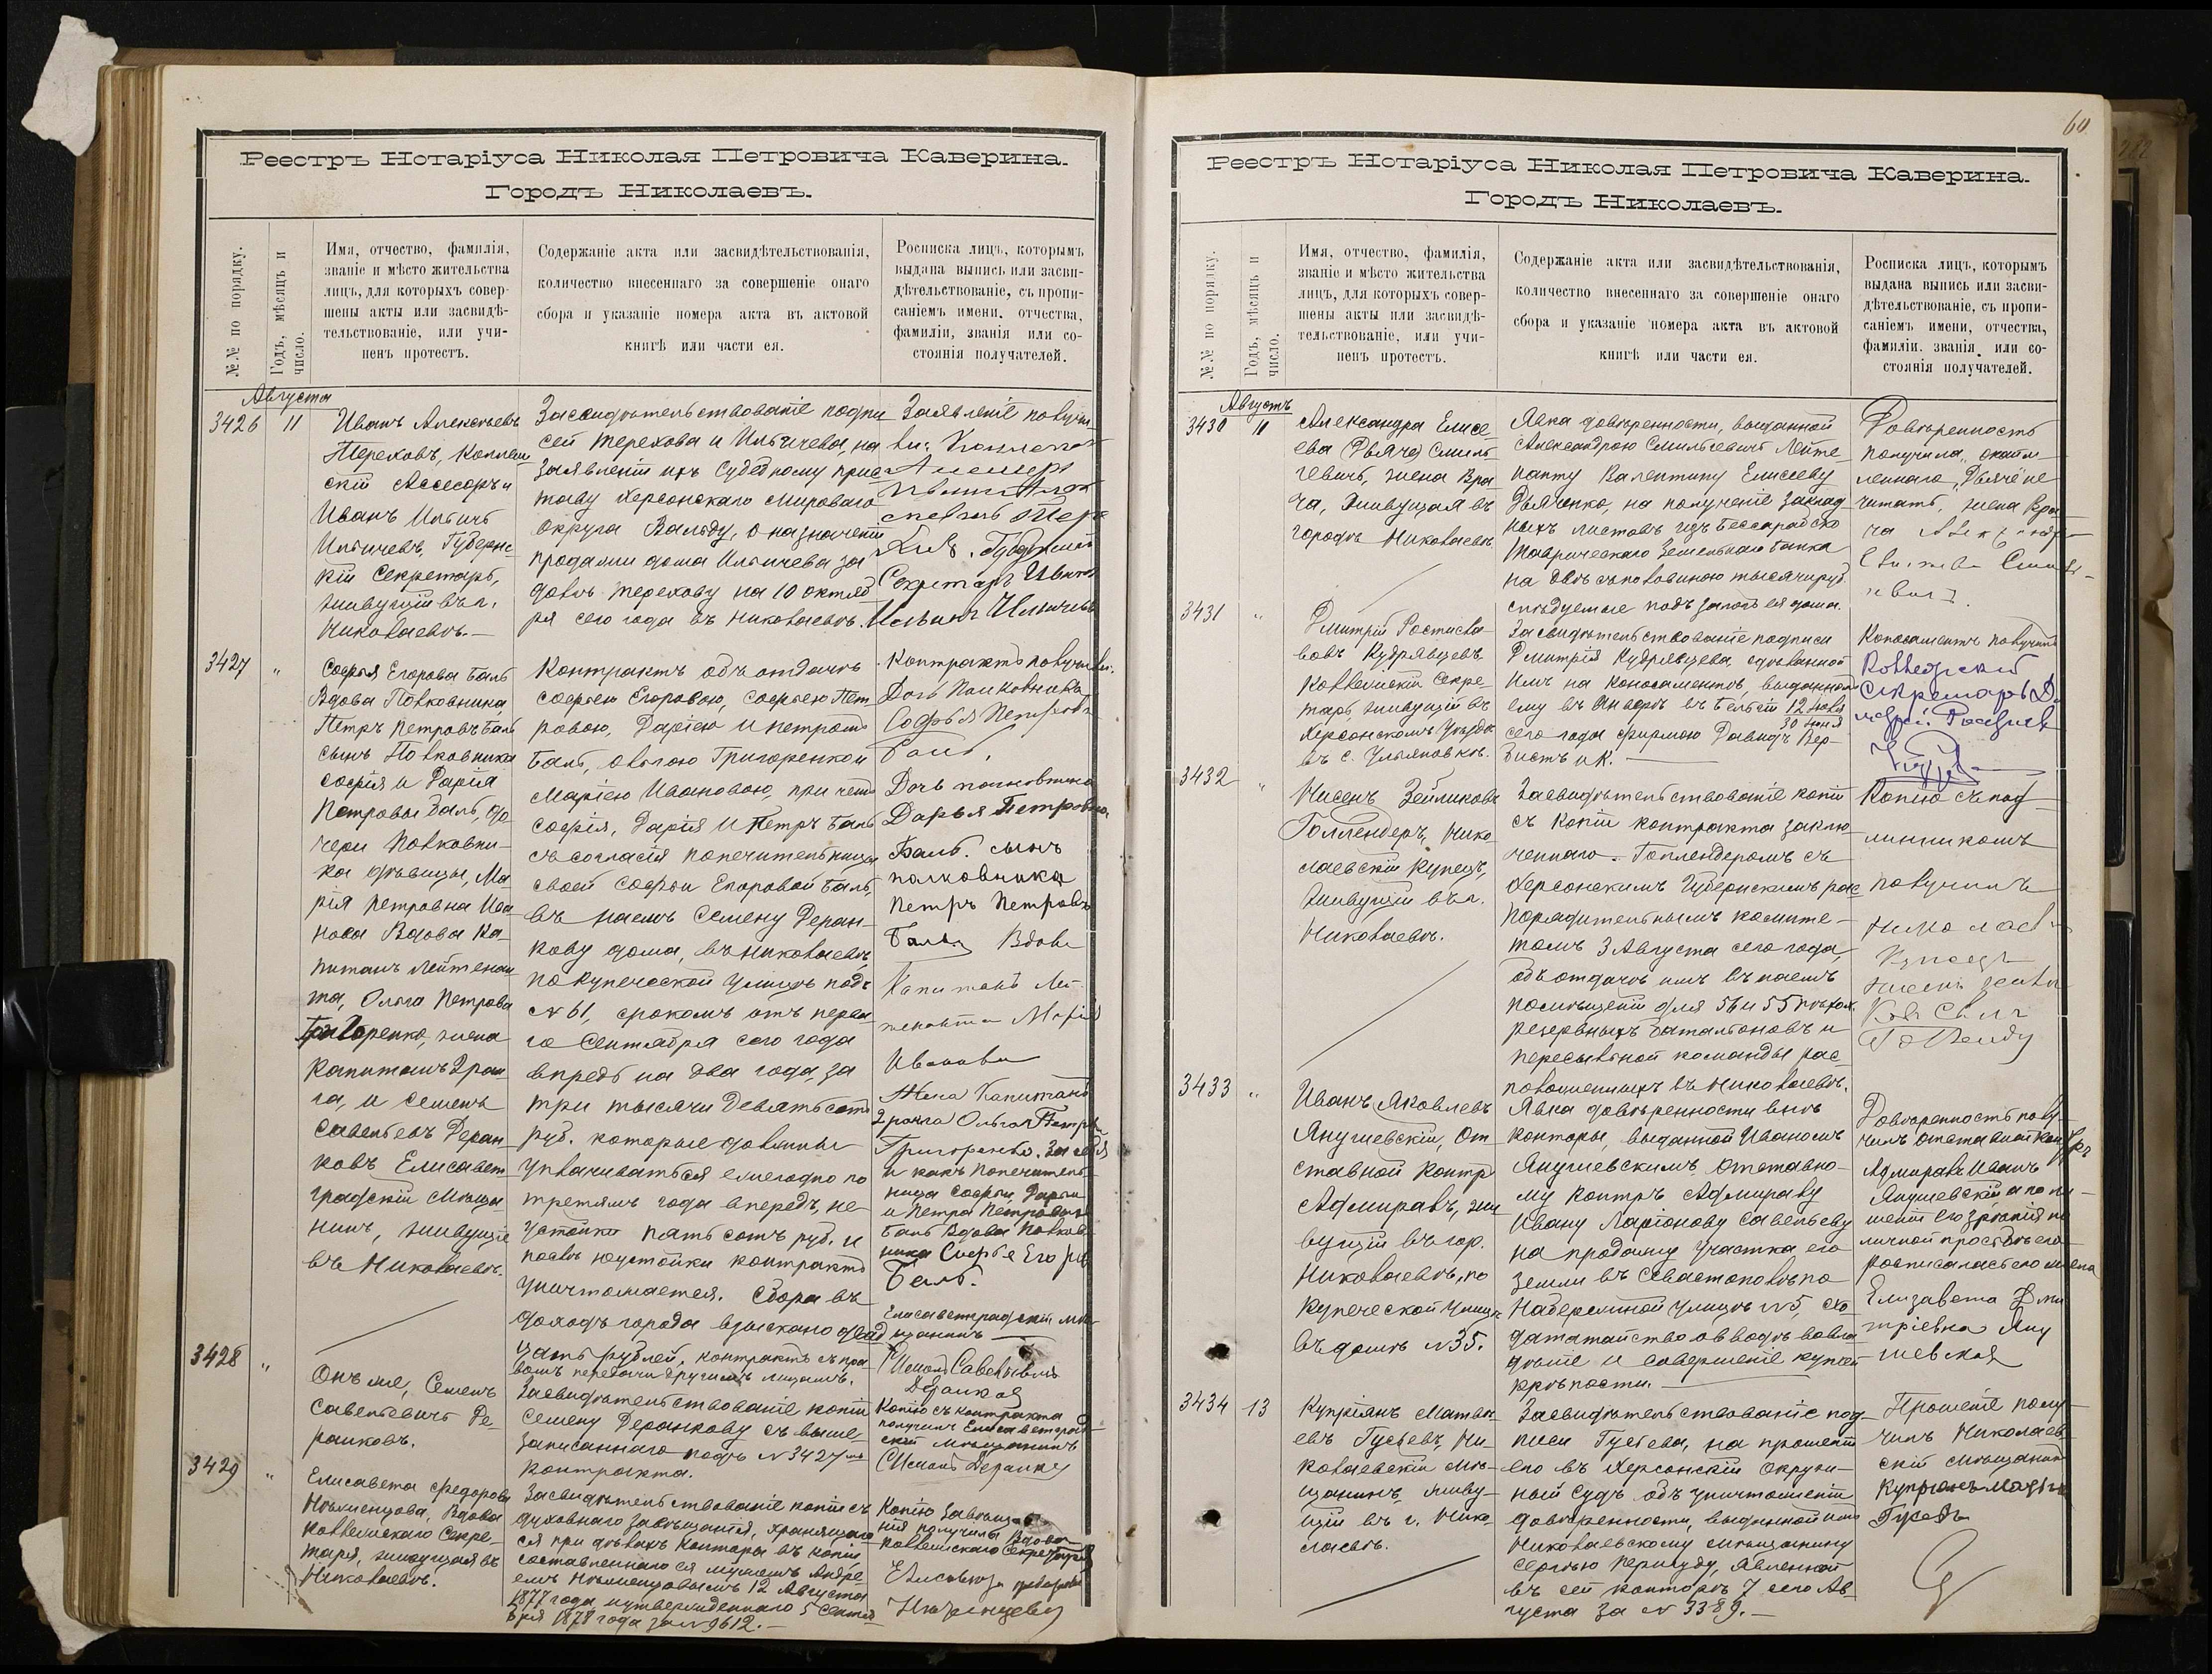 Реестръ Нотаріуса Николая Петровича Каверина.
Городъ Николаевъ.
№№ по порядку.
Годъ, мѣсяцъ и
число.
Имя, отчество, фамилія,
званіе и мѣсто жительства
лицъ, для которыхъ совер-
шены акты или засвидѣ-
тельствованіе, или учи-
ненъ протестъ.
Содержаніе акта или засвидѣтельствованія,
количество внесеннаго за совершеніе онаго
сбора и указаніе номера акта въ актовой
книгѣ или части ея.
Росписка лицъ, которымъ
выдана выпись или засви-
дѣтельствованіе, съ пропи-
саніемъ имени, отчества,
фамиліи, званія или со-
стоянія получателей.
Августа
3426 11
Иванъ Алексѣевъ
Тереховъ, Коллеж
скій Ассесоръ и
Иванъ Ильичъ
Ильичевъ, Губерн-
скій Секретарь,
живущій въ г.
Николаевѣ.
Засвидѣтельствованіе подпи
сей Терехова и Ильичева, на
заявленіи ихъ Судебному прис
таву Херсонскаго Мироваго
округа Вальду, о назначеніи
продажи дома Ильичева за
долгъ Терехову на 10 октяб
ря сего года въ Николаевѣ.
Заявленіе получи
ли:
Губернскій
Секретарь Иванъ
Ильинъ Ильичевъ
3427 "
Софья Егорова Баль
Вдова Полковника
Петръ Петровъ Баль
сынъ Полковника
Софія и Дарія
Петровы Баль, до-
чери Полковни-
ка дѣвицы, Ма-
рія Петровна Ива
нова Вдова Ка-
питанъ Лейтенан
та, Ольга Петрова
Григоренко, жена
Капитанъ 2 ран
га, и Семенъ
Савельевъ Деран
ковъ Елисавет
градскій Мѣща
нинъ, живущіе
въ Николаевѣ.
Контрактъ объ отдачѣ
Софьею Егоровою, Софьею Пет
ровою, Даріею и Петромъ
Баль, Ольгою Григоренкой
Маріею Ивановою, при чемъ
Софія, Дарія и Петръ Баль
съ согласія попечительницы
своей Софьи Егоровой Баль,
въ наемъ Семену Деран-
кову дома, въ Николаевѣ,
по Купеческой улицѣ подъ
№ 61, срокомъ отъ перва-
го Сентября сего года
впредь на два года, за
три тысячи девятьсотъ
руб. которые должны
уплачиваться ежегодно по
третямъ года впередъ, не-
устойки пятьсотъ руб. и
послѣ неустойки контрактъ
уничтожается. Сбора въ
доходъ города взыскано двад
цать рублей, контрактъ съ пра
вомъ передачи другимъ лицамъ.
Контрактъ получили:
Дочь Полковника
Софья Петрова
Баль.
Дочь полковника
Дарья Петровна
Баль. сынъ
полковника
Петръ Петровъ
Баль Вдова
Капитанъ Лей-
тенанта Марія
Иванова
Жена Капитана
2 ранга Ольга Петров
Григоренко. За себя
и какъ попечитель
ница Софьи, Дарьи
и Петра Петровыхъ
Баль Вдова Полков
ника Софья Егоров
Баль.
Елисаветградскій мѣ-
щанинъ
Семенъ Савельевичъ
Деранков
3428 "
Онъ же, Семенъ
Савельевичъ Де-
ранковъ.
Засвидѣтельствованіе копіи
Семену Деранкову съ выше-
записаннаго подъ № 3427мъ
контракта.
Копію съ контракта
получилъ Елисаветград
скій мѣщанинъ
Семенъ Деранков
3429 "
Елисавета Федорова
Нѣженцова, Вдова
Коллежскаго Секре-
таря, живущая въ
Николаевѣ.
Засвидѣтельствованіе копіи съ
духовнаго завѣщанія, хранящаго
ся при дѣлахъ Конторы въ копіи
составленнаго ея мужемъ Андре
емъ Нѣженцовымъ 12 Августа
1877 года и утвержденнаго 5 Сентя-
бря 1878 года за № 9612.
Копію завѣща-
нія получила Вдова
коллежскаго Секретаря
Елисавета Федорова
Нѣженцева
60
Реестръ Нотаріуса Николая Петровича Каверина.
Городъ Николаевъ.
№№ по порядку.
Годъ, мѣсяцъ и
число.
Имя, отчество, фамилія,
званіе и мѣсто жительства
лицъ, для которыхъ совер-
шены акты или засвидѣ-
тельствованіе, или учи-
ненъ протестъ.
Содержаніе акта или засвидѣтельствованія,
количество внесеннаго за совершеніе онаго
сбора и указаніе номера акта въ актовой
книгѣ или части ея.
Росписка лицъ, которымъ
выдана выпись или засви-
дѣтельствованіе, съ пропи-
саніемъ имени, отчества,
фамиліи, званія, или со-
стоянія получателей.
Августъ
3430 11
Александра Елисе-
ева
гевичъ, жена Вра-
ча, живущая въ
городѣ Николаевѣ
Явка довѣренности, выданной
Александрою Смильгевичъ Лейте-
нанту Валентину Елисееву
Дьяченко, на полученіе заклад
ныхъ листовъ изъ Бессарабско
Таврическаго Земельнаго банка
на двѣ съ половиною тысячи руб.
слѣдуемые подъ залогъ ея дома.
Довѣренность
получила,
читать, жена Вра-
ча
3431 "
Дмитрій Ростисла-
вовъ Кудрявцевъ
Коллежскій Секре-
тарь, живущій въ
Херсонскомъ Уѣздѣ
въ с. Ульяновкѣ.
Засвидѣтельствованіе подписи
Дмитрія Кудрявцева, сдѣланной
имъ на коносаментѣ, выданномъ
ему въ Анверѣ въ Бельгіи 12 Іюля
30 Іюня
сего года фирмою Давидъ Вер-
бистъ и К.
Коносаментъ получилъ
Коллежскій
Секретарь Д
3432 "
Нисенъ Зейликовъ
Голлендеръ, Нико
лаевскій Купецъ,
живущій въ г.
Николаевѣ.
Засвидѣтельствованіе копіи
съ копіи контракта заклю-
ченнаго Голлендеромъ съ
Херсонскимъ Губернскимъ рас
порядительнымъ комите-
томъ 3 Августа сего года,
объ отдачѣ имъ въ наемъ
помѣщеній для 56 и 55 пѣхот.
резервныхъ баталіоновъ и
пересыльной команды рас-
положенныхъ въ Николаевѣ.
Копію съ под
линникомъ
получилъ
Николаев
Купецъ
3433 "
Иванъ Яковлевъ
Янушевскій, От
ставной Контр
Адмиралъ, жи
вущій въ гор.
Николаевѣ, по
Купеческой Улицѣ
въ домѣ № 35.
Явка довѣренности внѣ
конторы, выданной Иваномъ
Янушевскимъ отставно-
му Контръ Адмиралу
Ивану Ларіонову Савельеву
на продажу участка его
земли въ Севастополѣ по
Набережной улицѣ № 5, хо
датайство о вводѣ во вла
дѣніе и совершеніе купчей
крѣпости.
Довѣренность полу-
чилъ отставной Контръ
Адмиралъ Иванъ
Янушевскій а по ли-
шеніи его зрѣнія по
личной просьбѣ его
росписалась его жена
Елизавета Дми
тріевна Яну
шевская
3434 13
Купріянъ Матвѣ-
евъ Гусевъ, Ни-
колаевскій Мѣ-
щанинъ, живу-
щій въ г. Нико-
лаевѣ.
Засвидѣтельствованіе под-
писи Гусева, на прошеніи
его въ Херсонскій Окруж-
ный судъ объ уничтоженіи
довѣренности, выданной имъ
Николаевскому мѣщанину
Сергѣю явленной
въ сей конторѣ 7 сего Ав-
густа за № 3389.
Прошеніе полу-
чилъ Николаев-
скій Мѣщанинъ
Купріянъ
Гусевъ